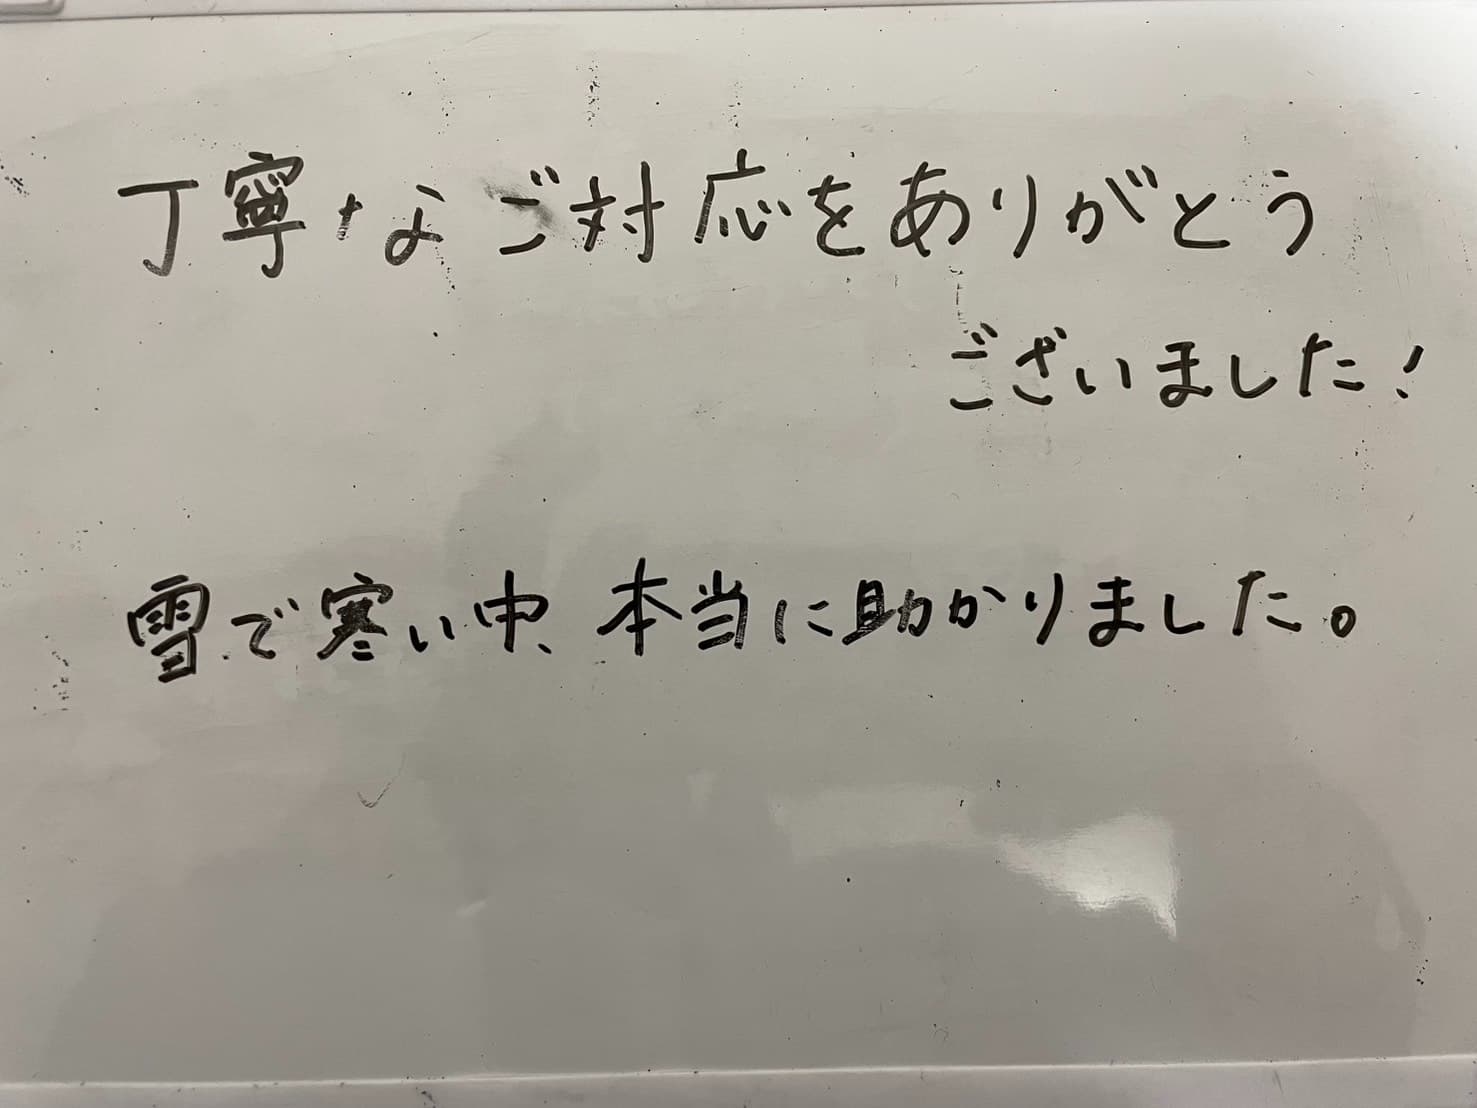 丁寧なご対応をありがとう
ございました!
雪で寒い中、本当に助かりました。